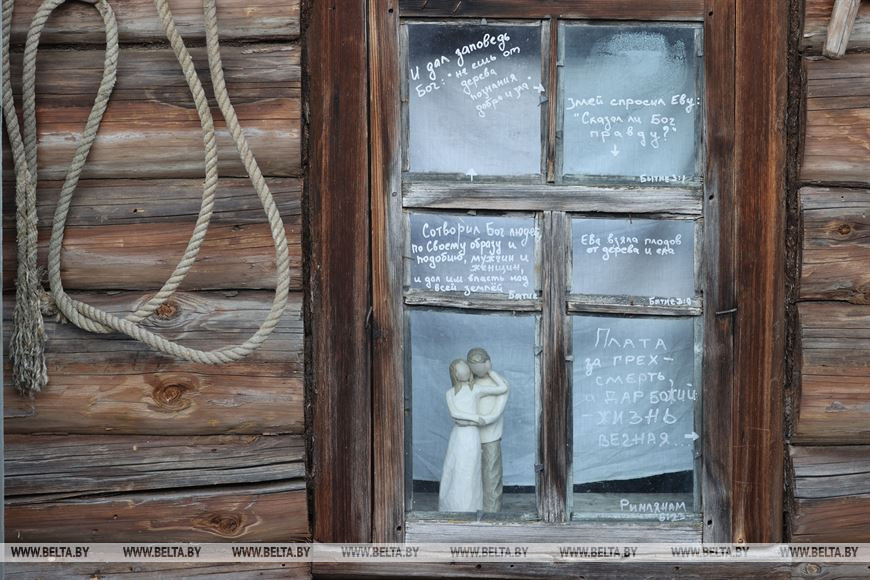 И дал заповедь
Бог: "не ешь от
дерева
познания
добра и зла"
Змей спросил Еву:
"Сказал ли Бог
правду?"
Бытие 3:1
Сотворил Бог людей
по Своему образу и
подобию, мужчин и
женщин,
и дал им власть над
всей землёй
Бытие
Ева взяла плодов
от дерева и ела
Бытие 3:
Плата
за грех -
смерть,
а дар Божий
- жизнь
вечная...
Римлянам
6:23
WWW.BELTA.BY WWW.BELTA.BY WWW.BELTA.BY WWW.BELTA.BY WWW.BELTA.BY WWW.BELTA.BY WWW.BELTA.BY WWW.BELTA.BY